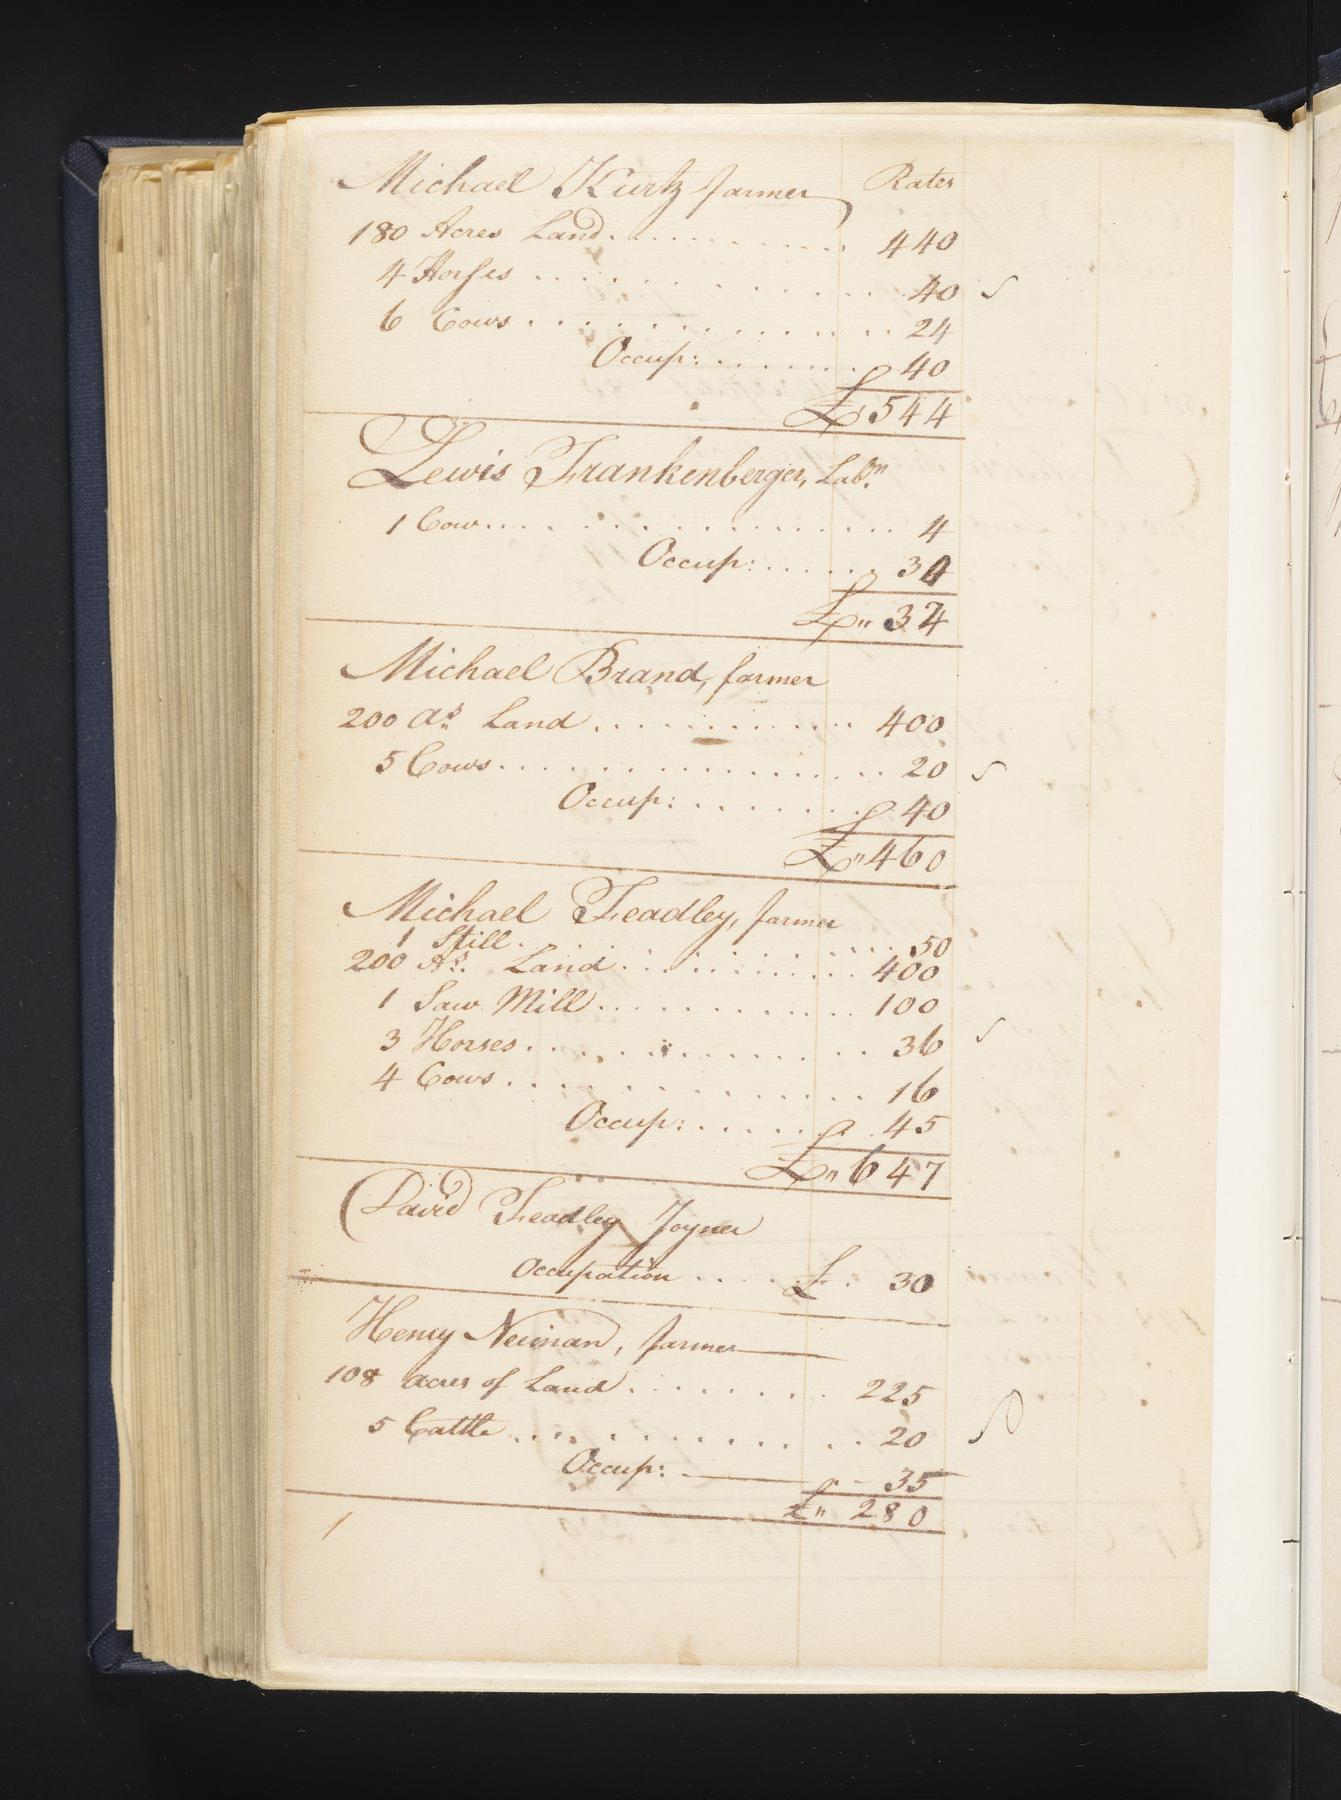 Michael Kurtz farmer Rates
180 Acres Land 440
4 Horses 40
6 Cows 24
Occup: 40
£" 544
Lewis Frankenberger, Labr.
1 Cow 4
Occup: 30
£" 34
Michael Brand, farmer
200 As. Land 400
5 Cows 20
Occup: 40
£" 460
Michael Feadley, farmer
1 Still 50
200 As. Land 400
1 Saw Mill 100
3 Horses 36
4 Cows 16
Occup: 45
£" 647
David Feadley Joyner
Occupation £ 30
Henry Neiman, farmer
108 acres of Land 225
5 Cattle 20
Occup: 35
£" 280